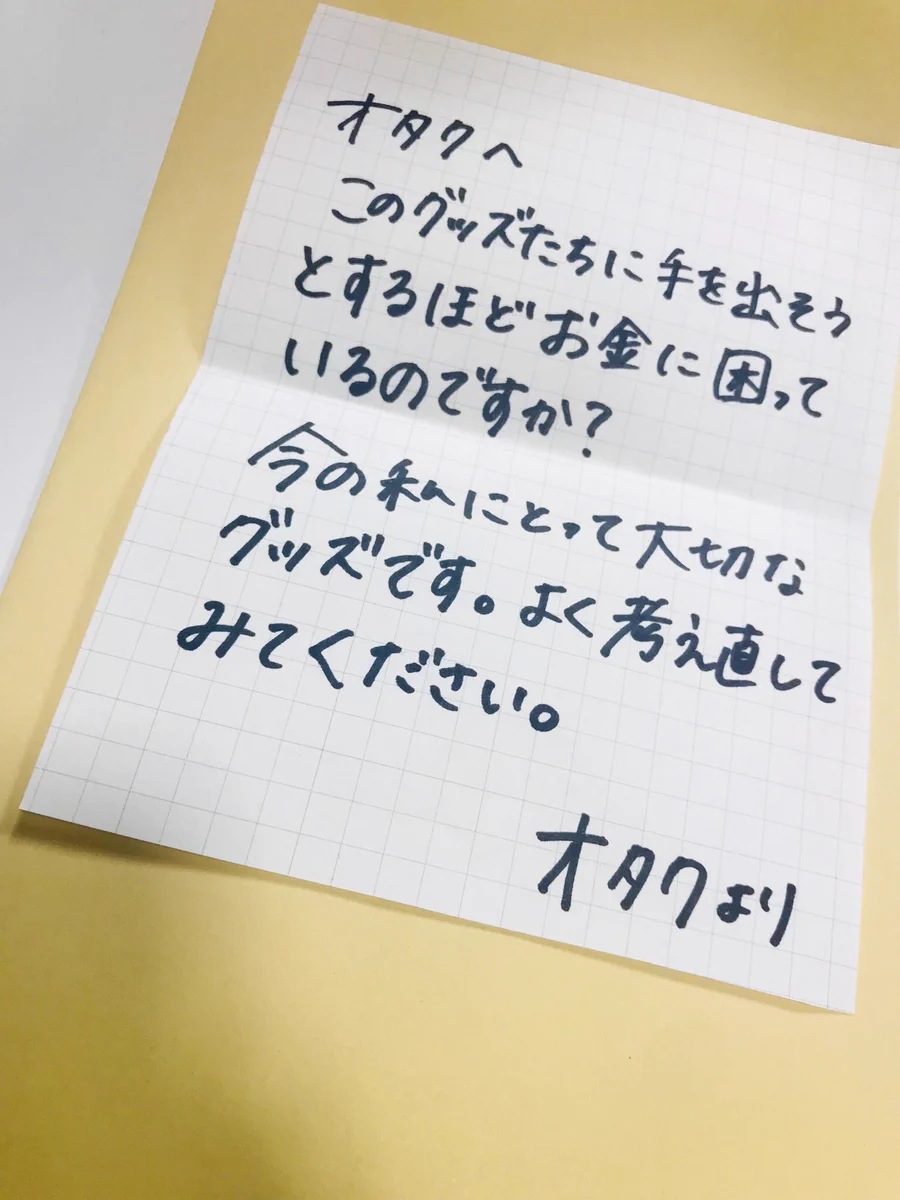 オタクへ
このグッズたちに手を出そう
とするほどお金に困って
いるのですか?
今の私にとって大切な
グッズです。よく考え直して
みてください。
オタクより